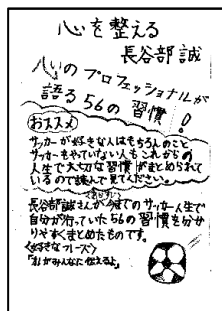 心を整える
長谷部誠
心のプロフェッショナルが
語る56の習慣!
おススメ
サッカーが好きな人はもちろんのこと
サッカーをやっていない人もこれからの
人生で大切な習慣がまとめられて
いるので読んで見てください。
長谷部誠さんが今までのサッカー人生で
自分が行っていた56の習慣を分か
りやすくまとめたものです。
<好きなフレーズ>
「私がみんなに伝えるよ」